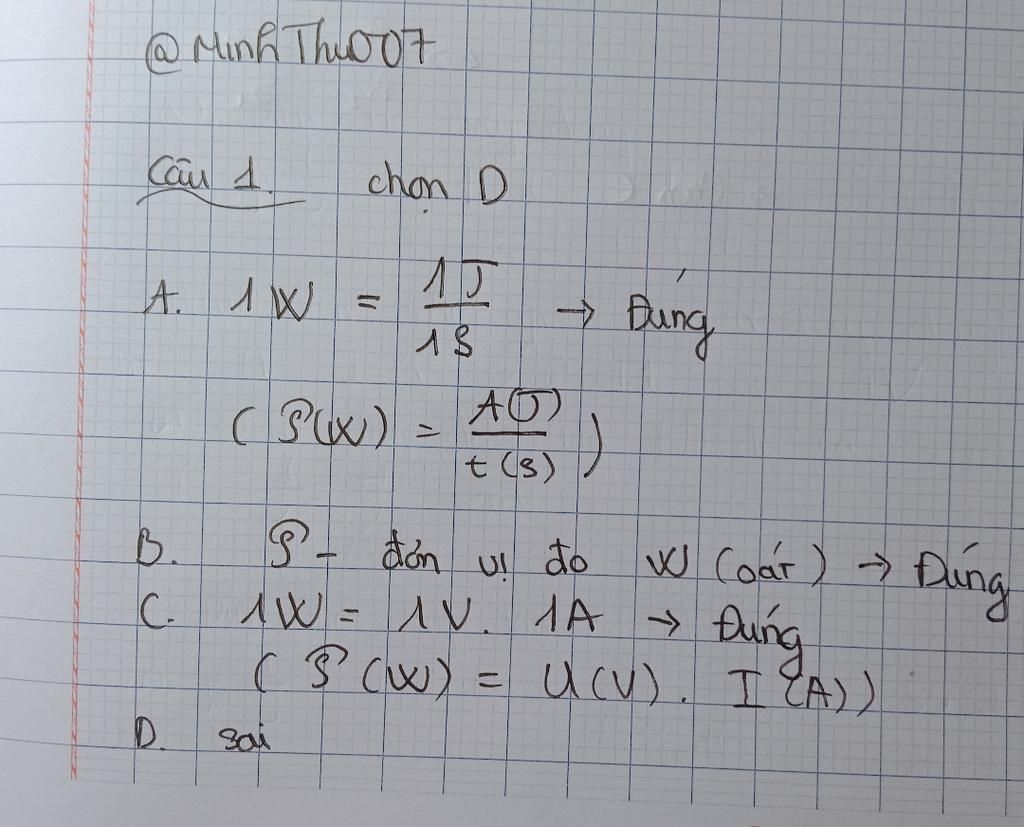 @MinhThu007
Câu 1. chọn D
A. 1W = 1J / 1s → Đúng
( P(W) = A(J) / t(s) )
B. P - đơn vị đo W (oát) → Đúng
C. 1W = 1V. 1A → Đúng
( P (W) = U(V). I (A))
D. sai